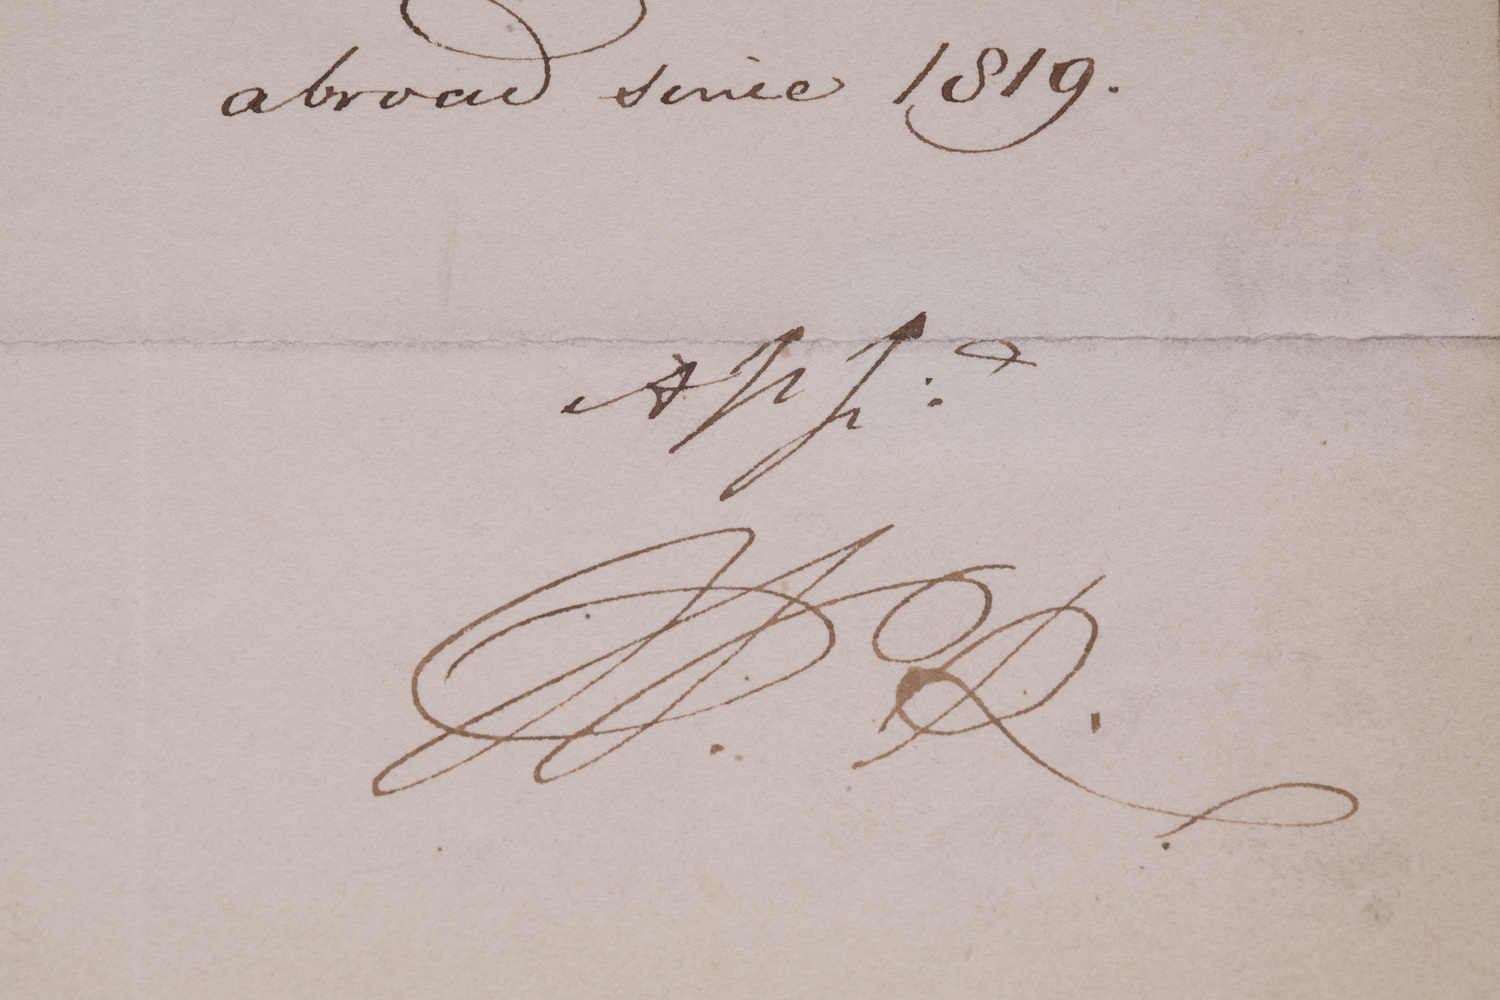 abroad since 1819.
App:d
W. R.